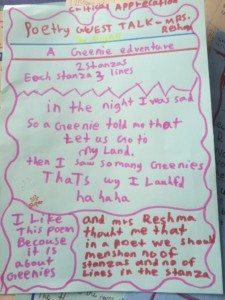 critical Apprecation
Poetry GUEST TALK - MRS.
Reshma
A Greenie edventure
2 stanzas
Each stanza 3 lines
in the night I was sad
So a Greenie told me that
Let us Go to
my Land.
then I saw so many Greenies
Thats wy I Laughfd
ha ha ha
I Like
This poem
Because
it is
about
Greenies
and mrs Reshma
thought me that
in a poet we should
menshon no of
stanzas and no of
Lines in the stanza